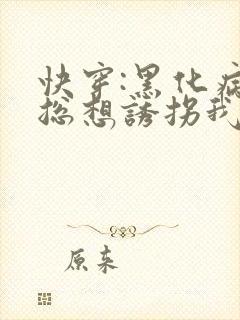 快穿:黑化病
总想誘拐我
原来